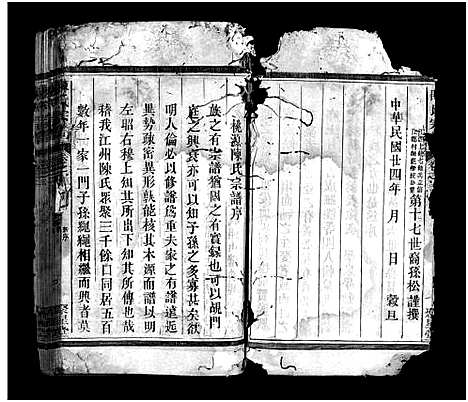 第十七世裔孫松謹撰
中華民國廿四年 月 日 穀旦
桃源陳氏宗譜序
族之有宗譜猶國之有實録也可以覘門
庭之興衰亦可以知子孫之多寡甚矣欲
明人倫必以修譜為重夫家之有譜遠近
異勢疎密異形孰能核其本源而譜以明
左昭右穆上知其所出下知其所傳也哉
稽我江州陳氏眾聚三千餘口同居五百
數年一家一門子孫繩繩相繼而興者莫